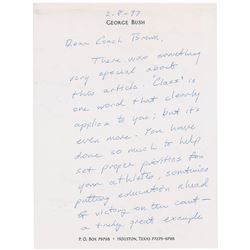 2-8-93
GEORGE BUSH
Dear Coach Brown,
There was something
very special about
this article. 'Class' is
one word that clearly
applies to you; but it's
even more. You have
done so much to help
set proper priorities for
your athletes, sometimes
putting education ahead
of victory on the court —
a truly great example
P. O. BOX 79798 • HOUSTON, TEXAS 77279-9798